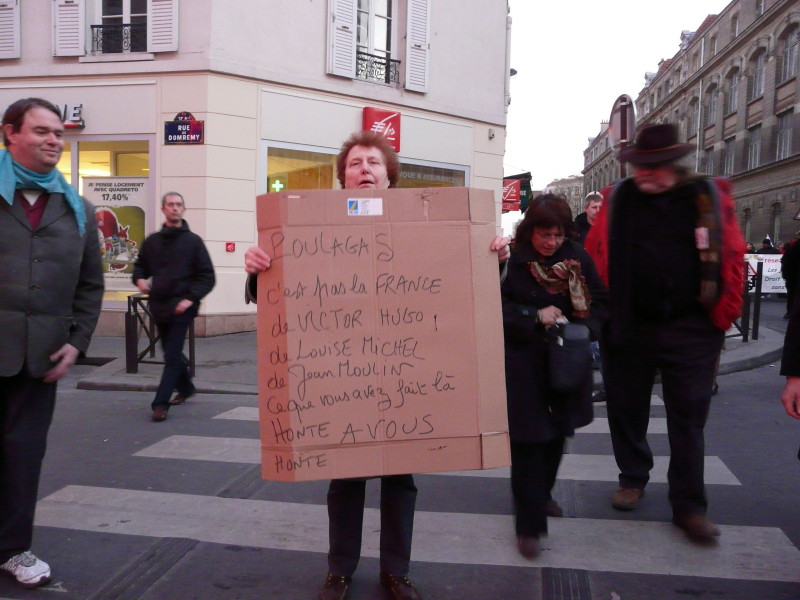 NE
RUE
DE DOMREMY
PENSE LOCATEST
AVEC QUADRETO
17,40%
POULAGAS
c'est pas la FRANCE
de VICTOR HUGO,
de LOUISE MICHEL
de Jean MOULIN
Ce que vous avez fait là
HONTE A VOUS
HONTE